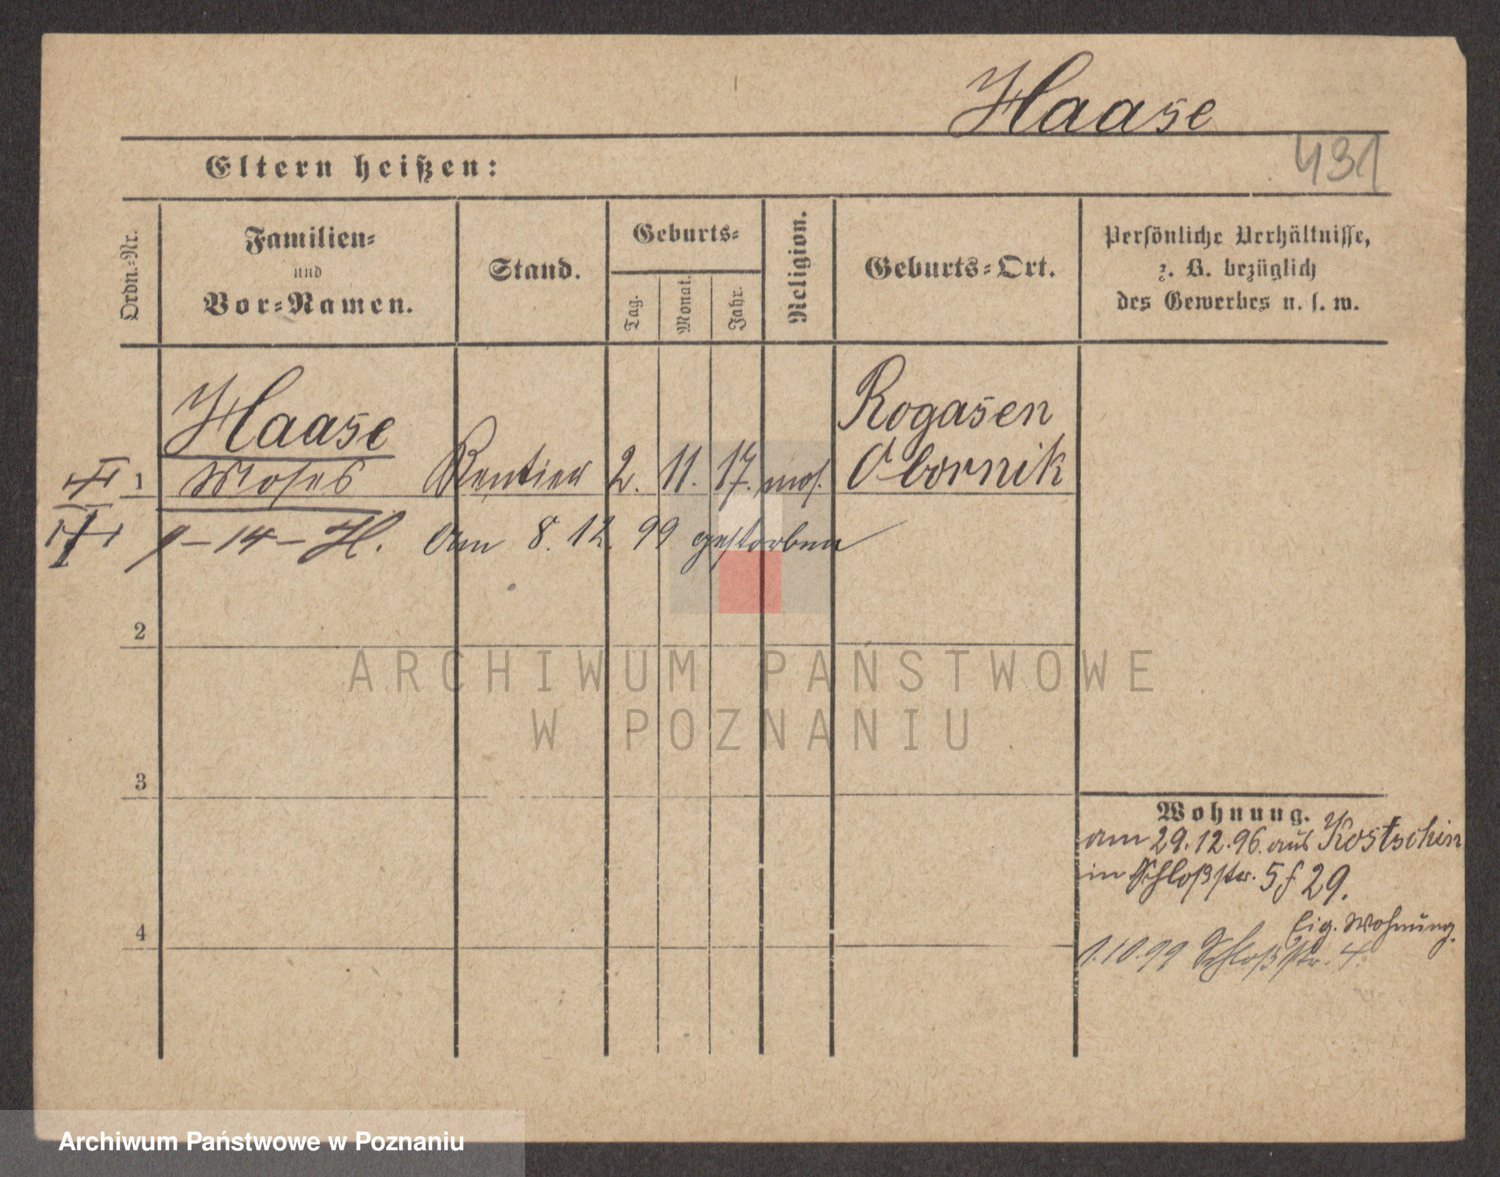 Haase
431
Eltern heißen:
Ordn.-Nr.
Familien-
und
Vor-Namen.
Stand.
Geburts-
Tag.
Monat.
Jahr.
Religion.
Geburts-Ort.
Persönliche Verhältnisse,
z. B. bezüglich
des Gewerbes u. s. w.
Haase
Moses
Rentier 2. 11. 17. mos.
Rogasen
Obornik
1
9-14-H. Am 8. 12. 99 gestorben
2
ARCHIWUM PAŃSTWOWE
W POZNANIU
3
Wohnung.
am 29.12.96. aus Kostschin
in Schloßstr. 5 f 29.
Eig. Wohnung.
4
1.10.99 Schloßstr. 4.
Archiwum Państwowe w Poznaniu